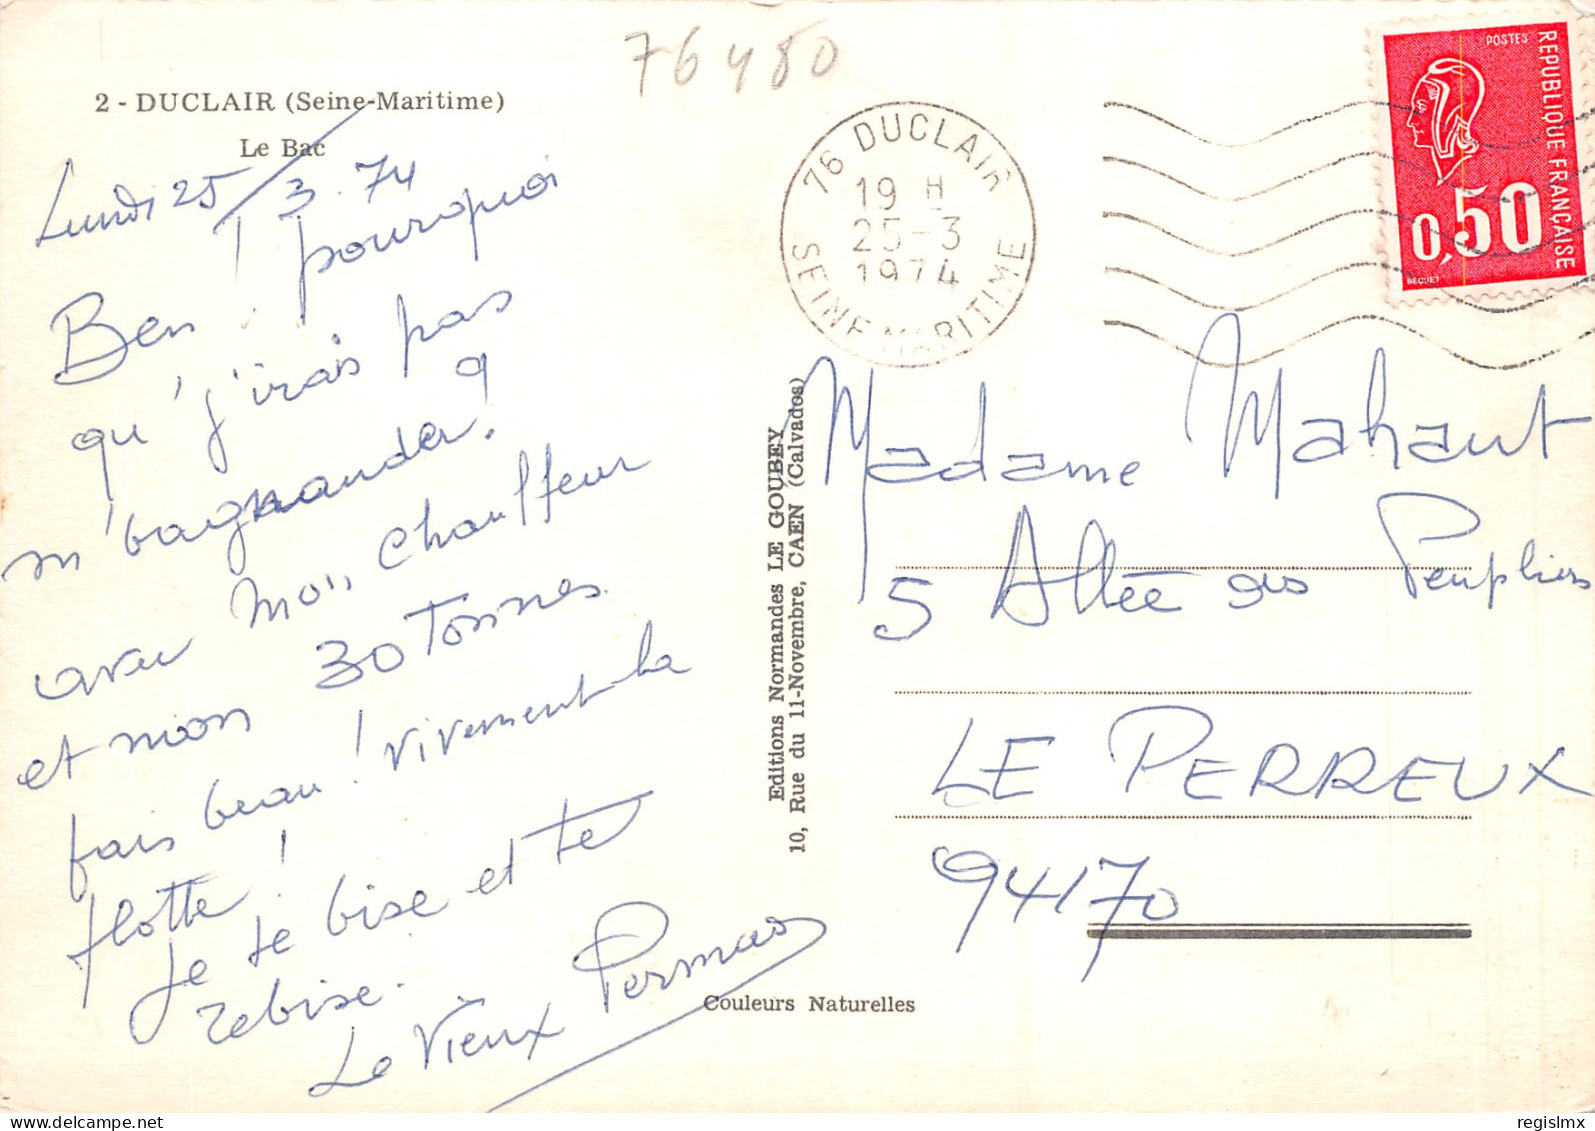 76480
2 - DUCLAIR (Seine-Maritime)
Le Bac
Lundi 25/3.74
Ben pourquoi
qu'j'irais pas
m'baguenander?
avec mon chauffeur
et mon 30 Tonnes.
fais beau! vivement la
flotte!
Je te bise et te
rebise.
Le Vieux
76 DUCLAIR
19 H
25-3
1974
SEINE MARITIME
POSTES
REPUBLIQUE FRANÇAISE
0,50
BEQUET
Editions Normandes LE GOUBEY
10, Rue du 11-Novembre, CAEN (Calvados)
Madame Mahaut
5 Allée des Peupliers
LE PERREUX
94170
Couleurs Naturelles
delcampe.net
regislmx